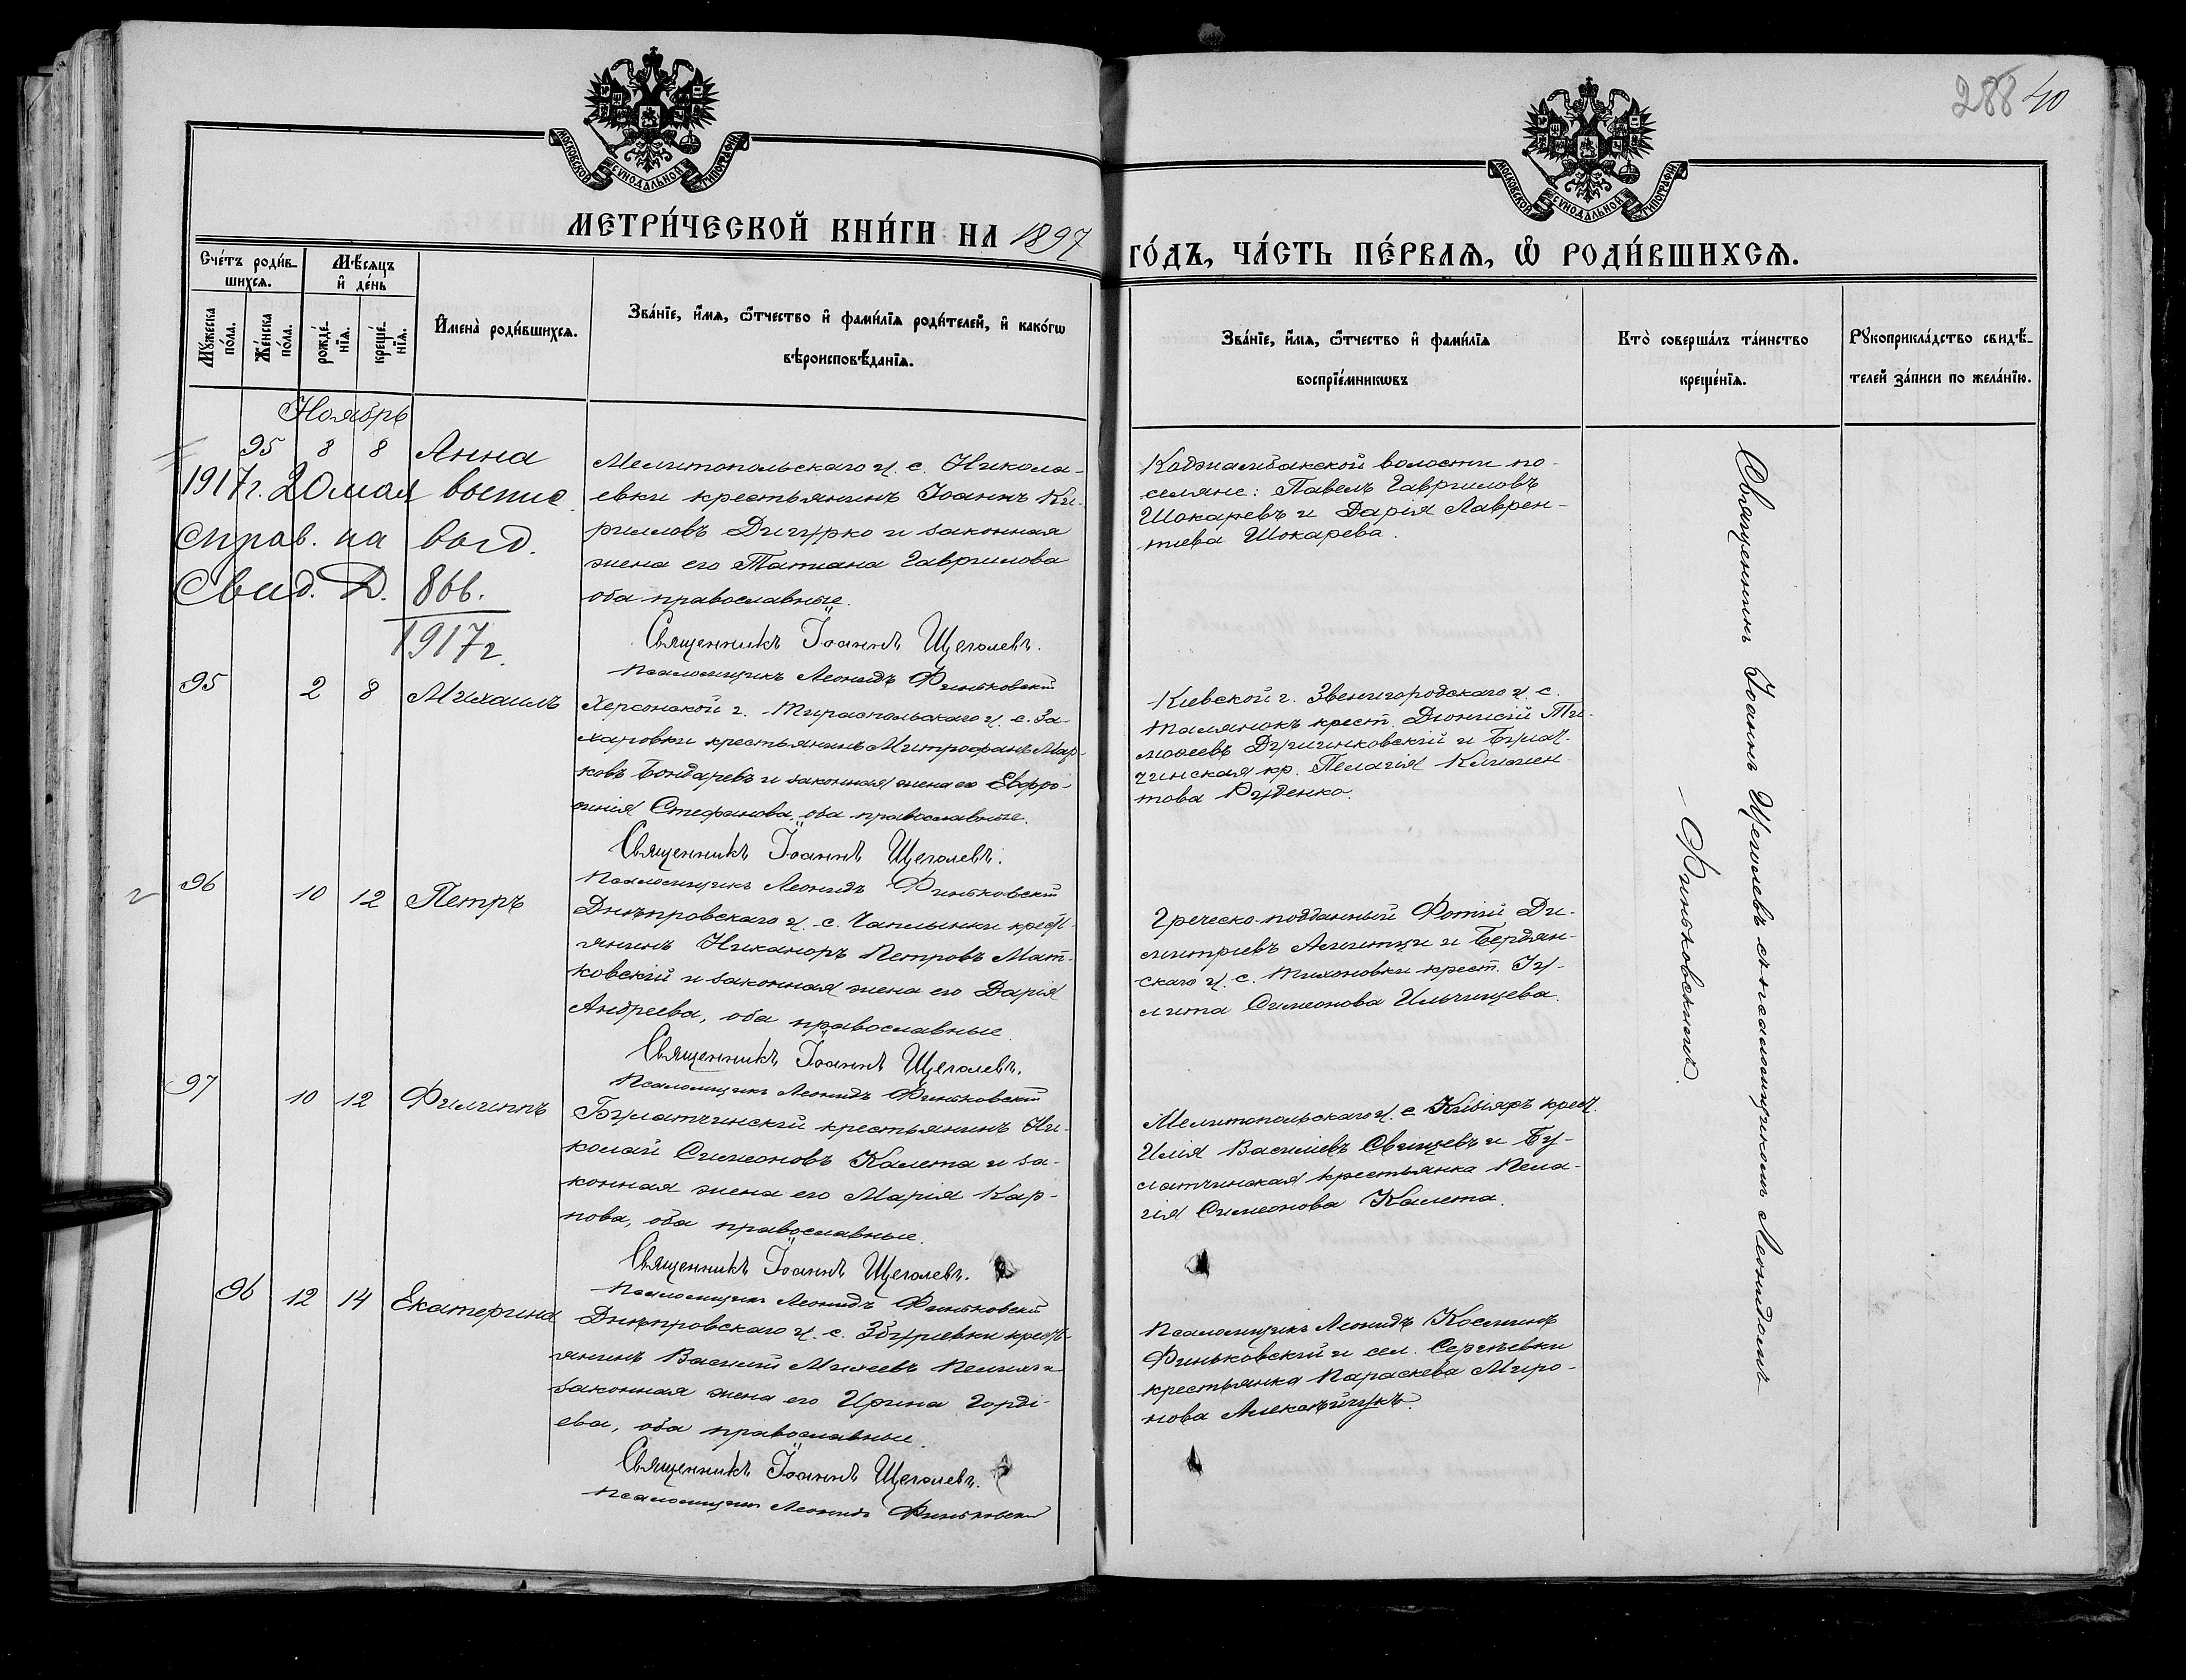 288 40
МОСКОВСКОЙ СѴНОДАЛЬНОЙ ТИПОГРАФІИ
МОСКОВСКОЙ СѴНОДАЛЬНОЙ ТИПОГРАФІИ
МЕТРИ́ЧЕСКОЙ КНИ́ГИ НА 1897
ГО́ДЪ, ЧА́СТЬ ПЕ́РВАѦ, Ѡ҆ РОДИ́ВШИХСѦ.
Сче́тъ роди́в-
шихсѧ.
Мꙋжеска по́ла.
Же́нска по́ла.
Мѣ́сѧцъ
и҆ де́нь
рожде́-
нїѧ.
креще́-
нїѧ.
И҆мена̀ роди́вшихсѧ.
Зва́нїе, и҆́мѧ, ѻ҆́тчество и҆ фами́лїѧ роди́телей, и҆ како́гѡ
вѣроисповѣ́данїѧ.
Зва́нїе, и҆́мѧ, ѻ҆́тчество и҆ фами́лїѧ
воспрїе́мникѡвъ
Кто̀ соверша́лъ та́инство
креще́нїѧ.
Рꙋкоприкла́дство свидѣ́-
телей за́писи по жела́нїю.
Ноябрь
95 8 8 Анна
Мелитопольскаго у. с. Никола-
евки крестьянинъ Іоаннъ Ки-
рилловъ Дигурко и законная
жена его Татиана Гаврилова
оба православные.
Священникъ Іоаннъ Щеголевъ.
Псаломщикъ Леонидъ Финьковскій
1917 г. 20 мая выпис.
справ. на выд.
Свид. Д. 866.
1917 г.
Коджамбакской волости по-
селяне: Павелъ Гавриловъ
Шокаревъ и Дарія Лаврен-
тиева Шокарева.
95 2 8 Михаилъ
Херсонской г. Тираспольскаго у. с. За-
харовки крестьянинъ Митрофанъ Мар-
ковъ Бондаревъ и законная жена его Евфро-
синія Стефанова, оба православные.
Священникъ Іоаннъ Щеголевъ.
Псаломщикъ Леонидъ Финьковскій
Кіевской г. Звенигородскаго у. с.
Талянокъ крест. Діонисій Ти-
моѳеевъ
чинская кр. Пелагія Климен
това Руденко.
96 10 12 Петръ
Днѣпровскаго у. с. Чаплынки крест-
янинъ Никаноръ Петровъ Мат-
ковскій и законная жена его Дарія
Андреева, оба православные.
Священникъ Іоаннъ Щеголевъ.
Псаломщикъ Леонидъ Финьковскій
Греческо-подданный Фотій Ди-
митріевъ и Бердян-
скаго у. с. Тихоновки крест. Іу-
лита Симеонова Ильчищева.
97 10 12 Филиппъ
Булатчинскій крестьянинъ Ни-
колай Симеоновъ Калета и за-
конная жена его Марія Кар-
пова, оба православные.
Священникъ Іоаннъ Щеголевъ.
Псаломщикъ Леонидъ Финьковскій
Мелитопольскаго у. с. Кизіяръ крест.
Илія Василіевъ Свищевъ и Бу-
латчинская крестьянка Пела-
гія Симеонова Калета.
96 12 14 Екатерина
Днѣпровскаго у. с. Збурьевки крест-
янинъ Василій Михеевъ Пелихъ и
законная жена его Ирина Горді-
ева, оба православные.
Священникъ Іоаннъ Щеголевъ.
Псаломщикъ Леонидъ Финьковскій
Псаломщикъ Леонидъ Косминъ
Финьковскій и сел. Сергѣевки
крестьянка Параскева Миро-
нова Алексѣйчукъ.
Священникъ Іоаннъ Щеголевъ съ псаломщикомъ Леонидомъ
Финьковскимъ.